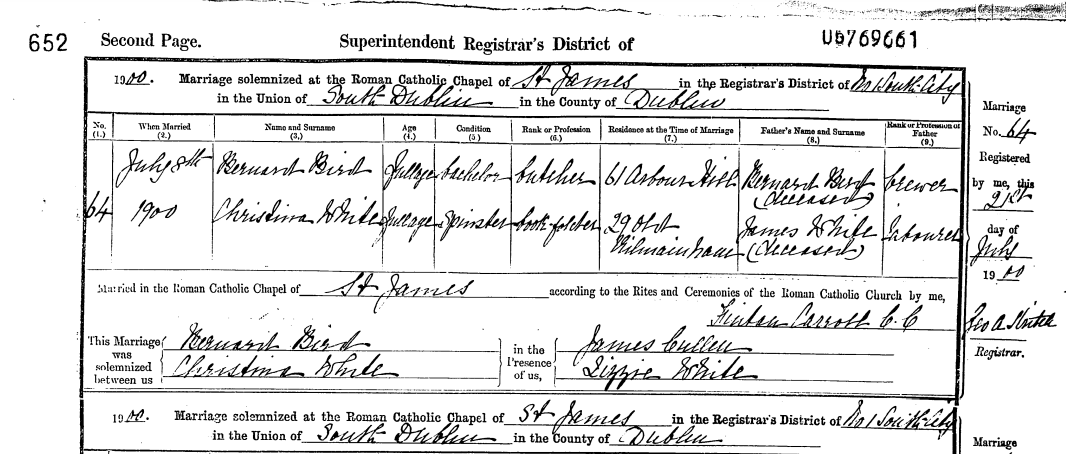 652 Second Page. Superintendent Registrar's District of 05769661
1900. Marriage solemnized at the Roman Catholic Chapel of St James in the Registrar's District of No 1 South City
in the Union of South Dublin in the County of Dublin
No. When Married Name and Surname Age Condition Rank or Profession Residence at the Time of Marriage Father's Name and Surname Rank or Profession of Father
(1.) (2.) (3.) (4.) (5.) (6.) (7.) (8.) (9.)
64 July 8th 1900
Bernard Bird full age bachelor butcher 61 Arbour Hill Bernard Bird (deceased) brewer
Christina White full age spinster book-folder 29 Old Kilmainham James White (deceased) labourer
Married in the Roman Catholic Chapel of St James according to the Rites and Ceremonies of the Roman Catholic Church by me,
Fintan Carroll C.C
This Marriage was solemnized between us
Bernard Bird
Christina White
in the Presence of us,
James Cullen
Lizzie White
Marriage
No. 64
Registered
by me, this
21st
day of
July
1900
Geo A
Registrar.
1900. Marriage solemnized at the Roman Catholic Chapel of St James in the Registrar's District of No 1 South City
in the Union of South Dublin in the County of Dublin
Marriage